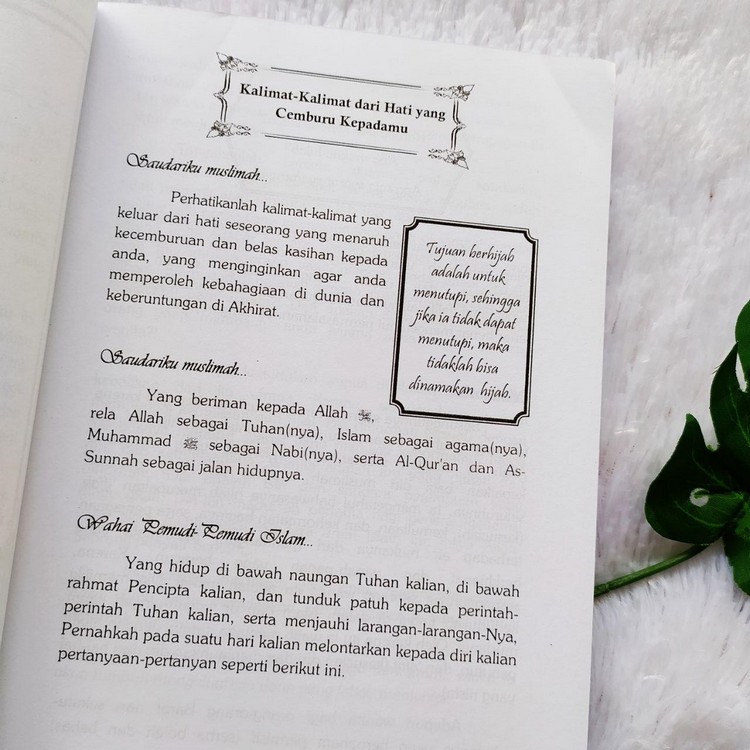 Kalimat-Kalimat dari Hati yang
Cemburu Kepadamu
Saudariku muslimah...
Perhatikanlah kalimat-kalimat yang
keluar dari hati seseorang yang menaruh
kecemburuan dan belas kasihan kepada
anda, yang menginginkan agar anda
memperoleh kebahagiaan di dunia dan
keberuntungan di Akhirat.
Tujuan berhijab
adalah untuk
menutupi, sehingga
jika ia tidak dapat
menutupi, maka
tidaklah bisa
dinamakan hijab.
Saudariku muslimah...
Yang beriman kepada Allah ﷻ,
rela Allah sebagai Tuhan(nya), Islam sebagai agama(nya),
Muhammad ﷺ sebagai Nabi(nya), serta Al-Qur'an dan As-
Sunnah sebagai jalan hidupnya.
Wahai Pemudi-Pemudi Islam...
Yang hidup di bawah naungan Tuhan kalian, di bawah
rahmat Pencipta kalian, dan tunduk patuh kepada perintah-
perintah Tuhan kalian, serta menjauhi larangan-larangan-Nya,
Pernahkah pada suatu hari kalian melontarkan kepada diri kalian
pertanyaan-pertanyan seperti berikut ini.